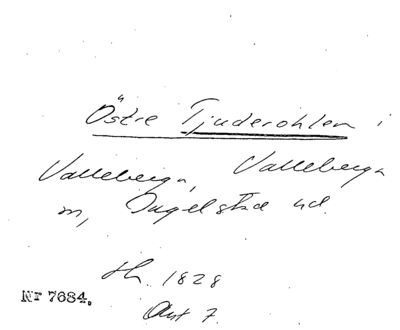 Östre Tjuderohlen i
Valleberga, Valleberga
sn, Ingelstad hd.
Sk. 1828
Akt 7.
Nr 7684.